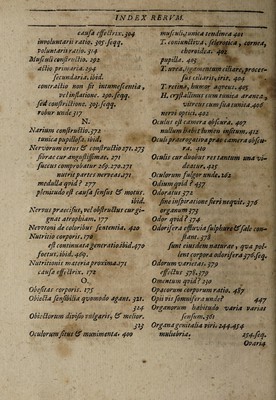 INDEX RERVM.
causa effectrix. 304
involuntarii ratio. 305. seqq.
voluntarii ratio. 314
Musculi constrictio. 292
actio primaria. 294
secundaria. ibid.
contractio non fit intumescentia,
vel inflatione. 290. seqq.
sed constrictione. 303. seqq.
robur unde 317
N.
Narium constructio. 372
tunica papillosa. ibid.
Nervorum ortus & constructio 271. 273
fibrae cur angustissimae. 271
succus comprobatur 269. 270. 271
nutrit partes nerveas. 271.
medulla quid? 277
plenitudo est causa sensus & motus.
ibid.
Nervus praecisus, vel obstructus cur gi-
gnat atrophiam. 177
Newtoni de coloribus sententia. 420
Nutritio corporis. 170
est continuata generatio. ibid. 470
foetus. ibid. 469.
Nutritionis materia proxima. 171
causa effectrix. 172
O.
Obesitas corporis. 175
Obiecta sensibilia quomodo agant. 321.
314
Obiectorum divisio vulgaris, & melior.
323
Oculorum situs & munimenta. 400
musculi, tunica tendinea 401
T. coniunctiva, sclerotica, cornea,
choroidea. 402
pupilla. 403
T. uvea, ligamentum ciliare, proces-
sus ciliaris, iris. 404
T. retina, humor aqueus. 405
H. crystallinus cum tunica aranea,
vitreus cum sua tunica. 406
nervi optici. 402
Oculus est camera obscura. 407
nullum habet humeo insitum. 412
Oculi praerogativa prae camera obscu-
ra. 410
Oculis cur duobus res tantum una vi-
deatur. 425
Oculorum fulgor unde. 262
Odium quid? 457
Odoratus 372
sine inspiratione fieri nequit. 376
organum 375
Odor quid? 374
Odorifera effluvia sulphure & sale con-
stant. 378
sunt eiusdem naturae, qua pol-
lent corpora odorifera 376. seq.
Odorum varietas. 379
effectus 378. 379
Omentum quid? 230
Opacorum corporum ratio. 487
Opii vis somnifera unde? 447
Organorum habitudo varia varias
sensum. 361
Organa genitalia viri. 244. 454
muliebria. 254. seq.
Ovaria